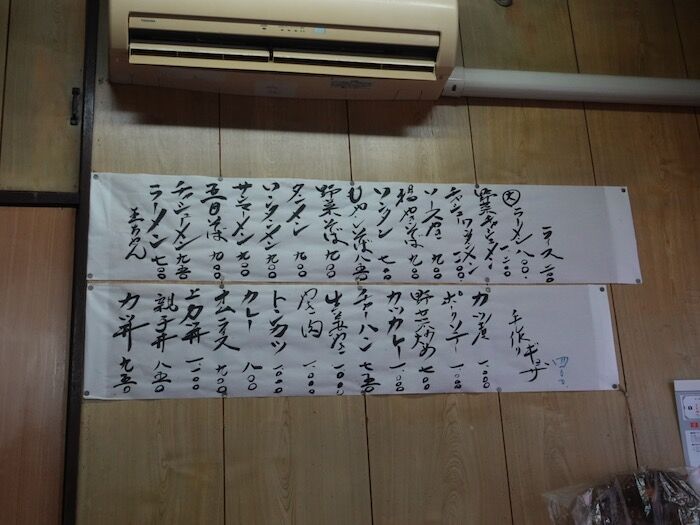 ライス
大 ラーメン 八〇〇
野菜チャーシューメン
チャーシューワンタンメン
ソース焼 九〇〇
揚やきそば 九〇〇
ワンタン 七〇〇
もやしそば 八五〇
野菜そば 九〇〇
タンメン 九〇〇
ワンタンメン 九〇〇
サンマーメン 九〇〇
五目そば 九〇〇
チャシューメン 九五〇
ラーメン 七〇〇
玉ちゃん
手作りギョーザ 四〇〇
カツ煮 一,〇〇〇
ポークソテー 一,〇〇〇
野菜炒め 七〇〇
カツカレー 一,〇〇〇
チャーハン 七五〇
生姜やき 一,〇〇〇
焼肉 一,〇〇〇
トンカツ 一,〇〇〇
カレー 八〇〇
オムライス 九〇〇
上カツ丼
親子丼 八五〇
カツ丼 九五〇